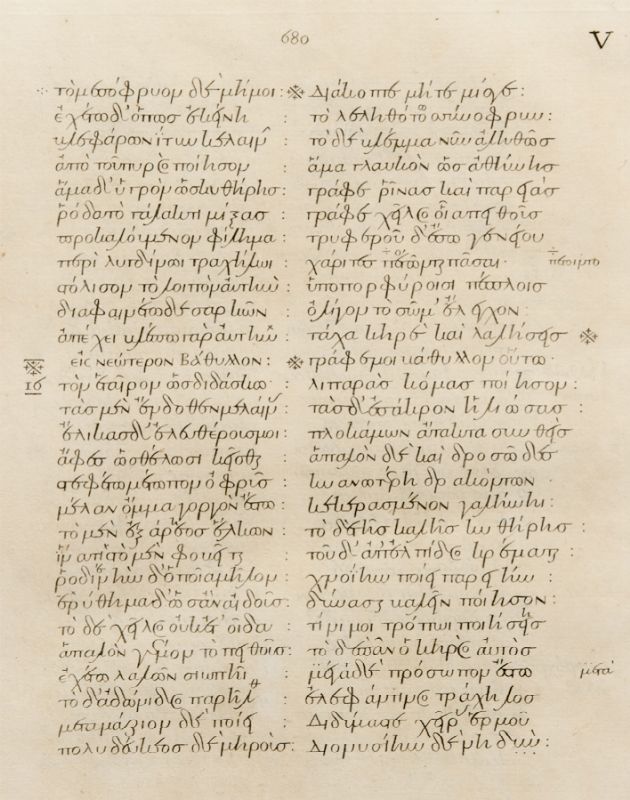 680 V
τὸ μεσόφρυον δὲ μή μοι : διάκοπτε μήτε μίσγε :
ἐχέτω δ' ὅπως ἐκείνη : τὸ λεληθότως σύνοφρυν :
βλεφάρων ἴτυν κελαινήν : τὸ δὲ βλέμμα νῦν ἀληθῶς
ἀπὸ τοῦ πυρὸς ποίησον : ἅμα γλαυκὸν ὡς ἀθήνης
ἅμα δ' ὑγρὸν ὡς κυθήρης : γράφε ῥῖνας καὶ παρειάς
ῥόδα τὸ γάλακτι μίξας : γράφε χεῖλος οἷα πειθοῦς
προκαλούμενον φίλημα : τρυφεροῦ δ' ἔσω γενείου
περὶ λυγδίνῳ τραχήλῳ : χάριτες πᾶσαι πέτοιντο
στόλισον τὸ λοιπὸν αὐτήν : ὑποπορφύροισι πέπλοις
διαφαινέτω δὲ σαρκῶν : ὀλίγον τὸ σῶμ' ἐλέγχον :
ἀπέχει βλέπω γὰρ αὐτήν : τάχα κηρὲ καὶ λαλήσεις
εἰς νεώτερον Βάθυλλον : γράφε μοι βάθυλλον οὕτω
16 τὸν ἑταῖρον ὡς διδάσκω · λιπαρὰς κόμας ποίησον :
τὰς μὲν ἔνδοθεν μελαίνας : τὰς δ' ἐς ἄκρον ἡλιώσας :
ἕλικας δ' ἐλευθέροις μοι : πλοκάμων ἄτακτα συνθεὶς
ἄφες ὡς θέλωσι κεῖσθαι : ἁπαλὸν δὲ καὶ δροσῶδες
στεφέτω μέτωπον ὀφρῦς : κυανωτέρη δρακόντων ·
μέλαν ὄμμα γοργὸν ἔστω : κεκερασμένον γαλήνῃ :
τὸ μὲν ἐξ ἄρηος ἕλκων : τὸ δὲ τῆς καλῆς κυθήρης :
ἵνα τις τὸ μὲν φοβῆται : τοῦ δ' ἀπ' ἐλπίδος κρεμᾶται :
ῥοδίνην δ' ὁποῖα μῆλον : χνοΐην ποίει παρειήν :
ἐρύθημα δ' ὡς ἂν αἰδοῦς : δύνασαι καλὴν ποίησον :
τὸ δὲ χεῖλος οὐκέτ' οἶδα : τίνι μοι τρόπῳ ποιήσεις
ἁπαλὸν γέμον τε πειθοῦς : τὸ δὲ πᾶν ὁ κηρὸς αὐτὸς
ἐχέτω λαλῶν σιωπῇ : μέγα δὲ πρόσωπον ἔστω μετὰ
τὸ δ' ἀδώνιδος παρῆλθε : ἐλεφάντινος τράχηλος
μεταμάζιον δὲ ποίει : διδύμας τε χεῖρας ἑρμοῦ
πολυδεύκεος δὲ μηρούς : διονυσίην δὲ νηδύν :